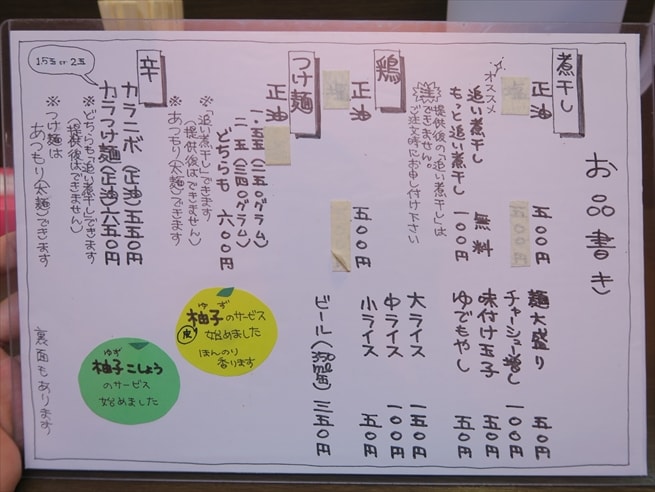 お品書き
煮干し
正油 五〇〇円
塩 五〇〇円
オススメ
追い煮干し 無料
もっと追い煮干し 一〇〇円
提供後の「追い煮干し」は
できません。
ご注文時にお申し付け下さい
鶏
正油 五〇〇円
塩
つけ麺
正油
一.五玉(二五〇グラム)
二玉(三四〇グラム)
どちらも 六〇〇円
※「追い煮干し」できます
(提供後はできません)
※あつもり(太麺)できます
辛
1.5玉 or 2玉
カラニボ(正油)五五〇円
カラつけ麺(正油)六五〇円
※どちらも「追い煮干し」できます
(提供後はできません)
※つけ麺は
あつもり(太麺)できます
麺大盛り 五〇円
チャーシュー増し 一〇〇円
味付け玉子 五〇円
ゆでもやし 五〇円
大ライス 一五〇円
中ライス 一〇〇円
小ライス 五〇円
ビール 三五〇円
ゆず
柚子のサービス
皮
始めました
ほんのり
香ります
ゆず
柚子こしょう
のサービス
始めました
裏面もあります